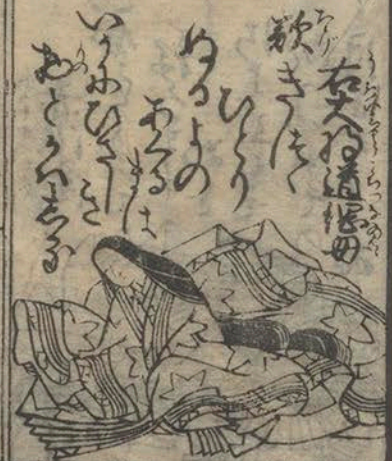 右大将道綱母
歎きつゝ
ひとり
ぬるよの
あくるまは
いかにひさしき
物とかはしる